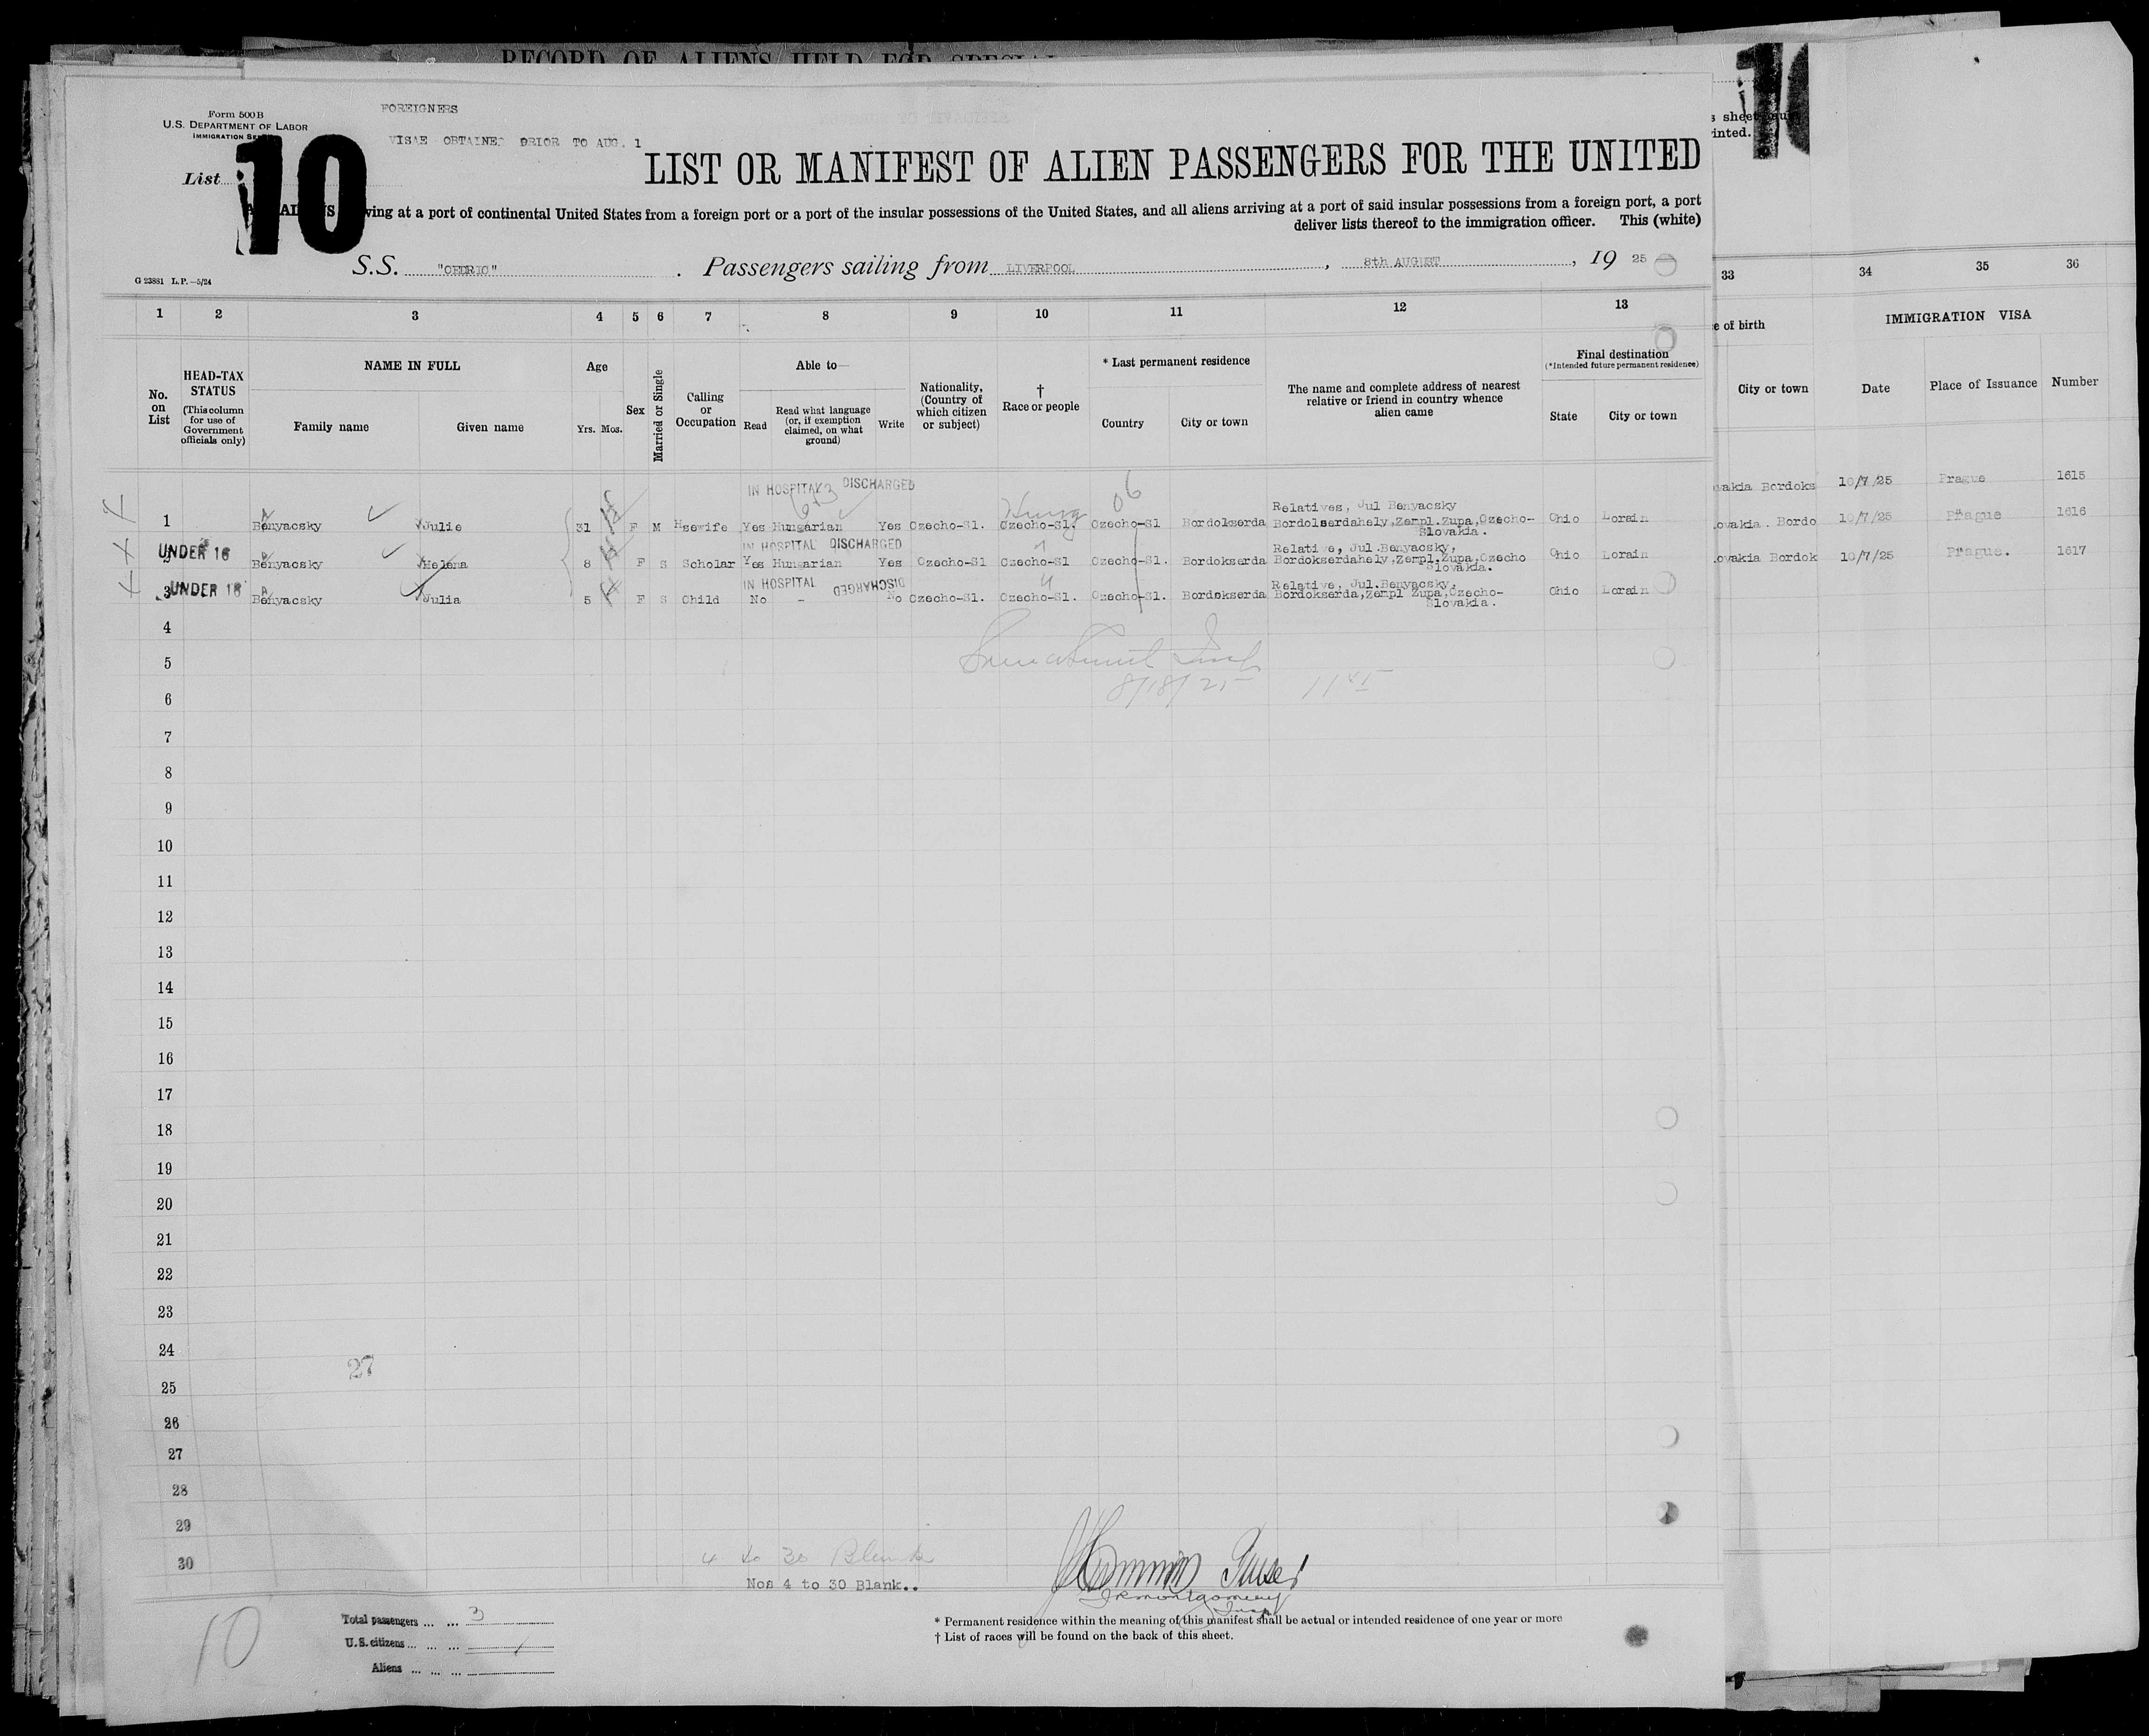 RECORD OF ALIENS HELD FOR SPECIAL
Form 500B
U.S. DEPARTMENT OF LABOR
IMMIGRATION
FOREIGNERS
VISAE OBTAINED PRIOR TO AUG. 1
List
10
LIST OR MANIFEST OF ALIEN PASSENGERS FOR THE UNITED
ving at a port of continental United States from a foreign port or a port of the insular possessions of the United States, and all aliens arriving at a port of said insular possessions from a foreign port, a port
deliver lists thereof to the immigration officer. This (white)
s sheet
inted.
S.S. "CEDRIC" . Passengers sailing from LIVERPOOL , 8th AUGUST , 19 25
G 23881 L.P.—5/24
1 2 3 4 5 6 7 8 9 10 11 12 13 33 34 35 36
No. on List
HEAD-TAX STATUS
(This column for use of Government officials only)
NAME IN FULL
Family name
Given name
Age
Yrs. Mos.
Sex
Married or Single
Calling or Occupation
Able to—
Read
Read what language (or, if exemption claimed, on what ground)
Write
Nationality, (Country of which citizen or subject)
†
Race or people
* Last permanent residence
Country
City or town
The name and complete address of nearest relative or friend in country whence alien came
Final destination
(*Intended future permanent residence)
State
City or town
e of birth
City or town
IMMIGRATION VISA
Date
Place of Issuance
Number
IN HOSPITAL DISCHARGED
Hung
06
Relatives, Jul Benyacsky
1 Benyacsky Julie 31 F M Hsewife Yes Hungarian Yes Czecho-Sl. Czecho-Sl. Czecho-Sl Bordokserda Bordolserdahely, Zempl.Zupa, Czecho- Ohio Lorain
Slovakia.
vakia Bordoks 10/7/25 Prague 1615
IN HOSPITAL DISCHARGED
Relative, Jul.Benyacsky,
UNDER 16 2 Benyacsky Helena 8 F S Scholar Yes Hungarian Yes Czecho-Sl Czecho-Sl Czecho-Sl. Bordokserda Bordokserdahely, Zempl.Zupa, Czecho Ohio Lorain
Slovakia.
ovakia. Bordo 10/7/25 Prague 1616
IN HOSPITAL DISCHARGED
Relative, Jul.Benyacsky,
3 UNDER 16 Benyacsky Julia 5 F S Child No - No Czecho-Sl. Czecho-Sl. Czecho-Sl. Bordokserda Bordokserda, Zempl Zupa, Czecho- Ohio Lorain
Slovakia.
ovakia Bordok 10/7/25 Prague. 1617
4
5
6 8/18/25
7
8
9
10
11
12
13
14
15
16
17
18
19
20
21
22
23
24
27
25
26
27
28
29
30
4 to 30 Blank
Nos 4 to 30 Blank..
10
Total passengers ... ... 3
U.S. citizens ... ... ...
Aliens ... ... ...
* Permanent residence within the meaning of this manifest shall be actual or intended residence of one year or more
† List of races will be found on the back of this sheet.